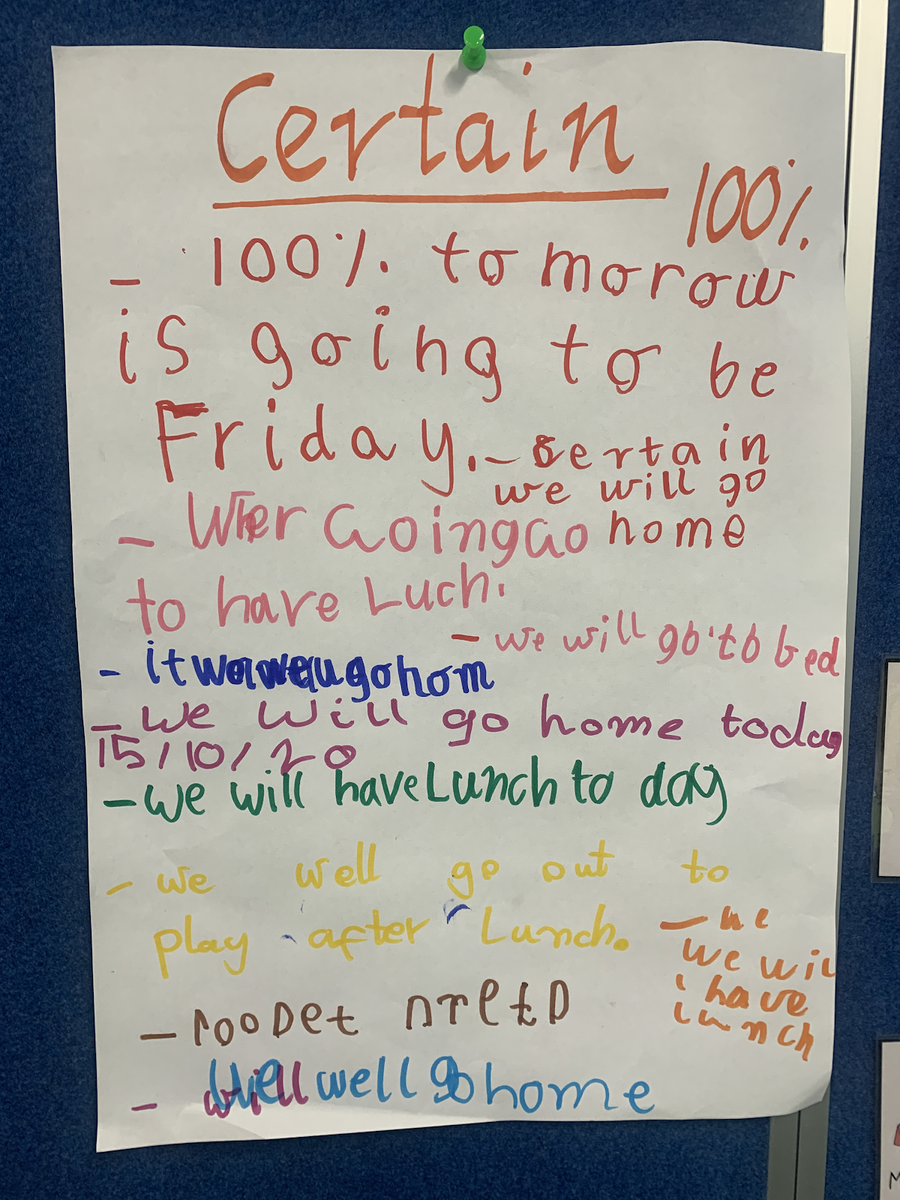 Certain
100%
- 100% to morow
is going to be
Friday.
- certain
we will go
home
- Going Go
to have Luch.
- we will go to bed
- it go hom
- we will go home today
15/10/20
- we will have Lunch to day
- we well go out to
play after Lunch.
- we
we wil
i have
lunch
- well go home